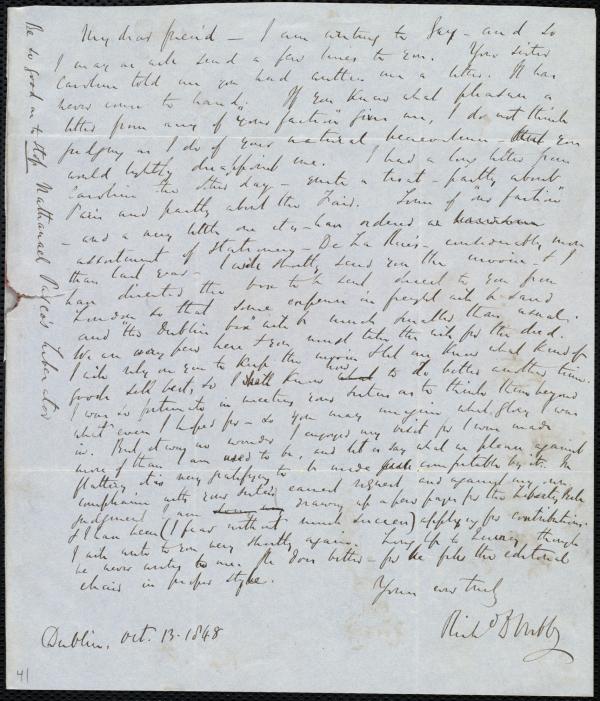 My dear friend - I am writing to Gay - and so
I may as well send a few lines to you. Your sister
Caroline told me you had written me a letter. It has
never come to hand. If you knew what pleasure a
letter from any of your faction gives me, I do not think
judging as I do of your natural benevolence - that you
would lightly disappoint me. I had a long letter from
Caroline the other day - quite a treat - partly about
Paris and partly about the Fair. Some of "our faction"
- and a very little one it is - have ordered an
assortment of Stationery - De La Rue's - considerably more
than last year - I will shortly send you the invoice - & I
have directed the box to be sent direct to you from
London so that some expense in freight will be saved
and "the Dublin box" will be much smaller than usual.
We are very few here & you must take the will for the deed.
I will rely on you to keep the invoice & let me know what kind of
goods sell best, so I shall know how to do better another time.
I was so fortunate in meeting your sisters as to think them beyond
what even I hoped for - so you may imagine what glory I was
in. But it was no wonder I enjoyed my visit for I was made
more of than I am used to be, and let us say what we please against
flattery it is very gratifying to be made comfortable by it. In
compliance with your sister's earnest request and against my own
judgment I am drawing up a few pages for the Liberty Bell
& I have been (I fear without much success) applying for contributions.
I will write to you very shortly again. Love to Quincy though
he never writes to me. He does better - for he fills the editorial
chair in proper style.
Yours ever truly
Richd D Webb
Dublin, Oct. 13-1848
Be so good as to stop Nathanael Paige's Liberator
41